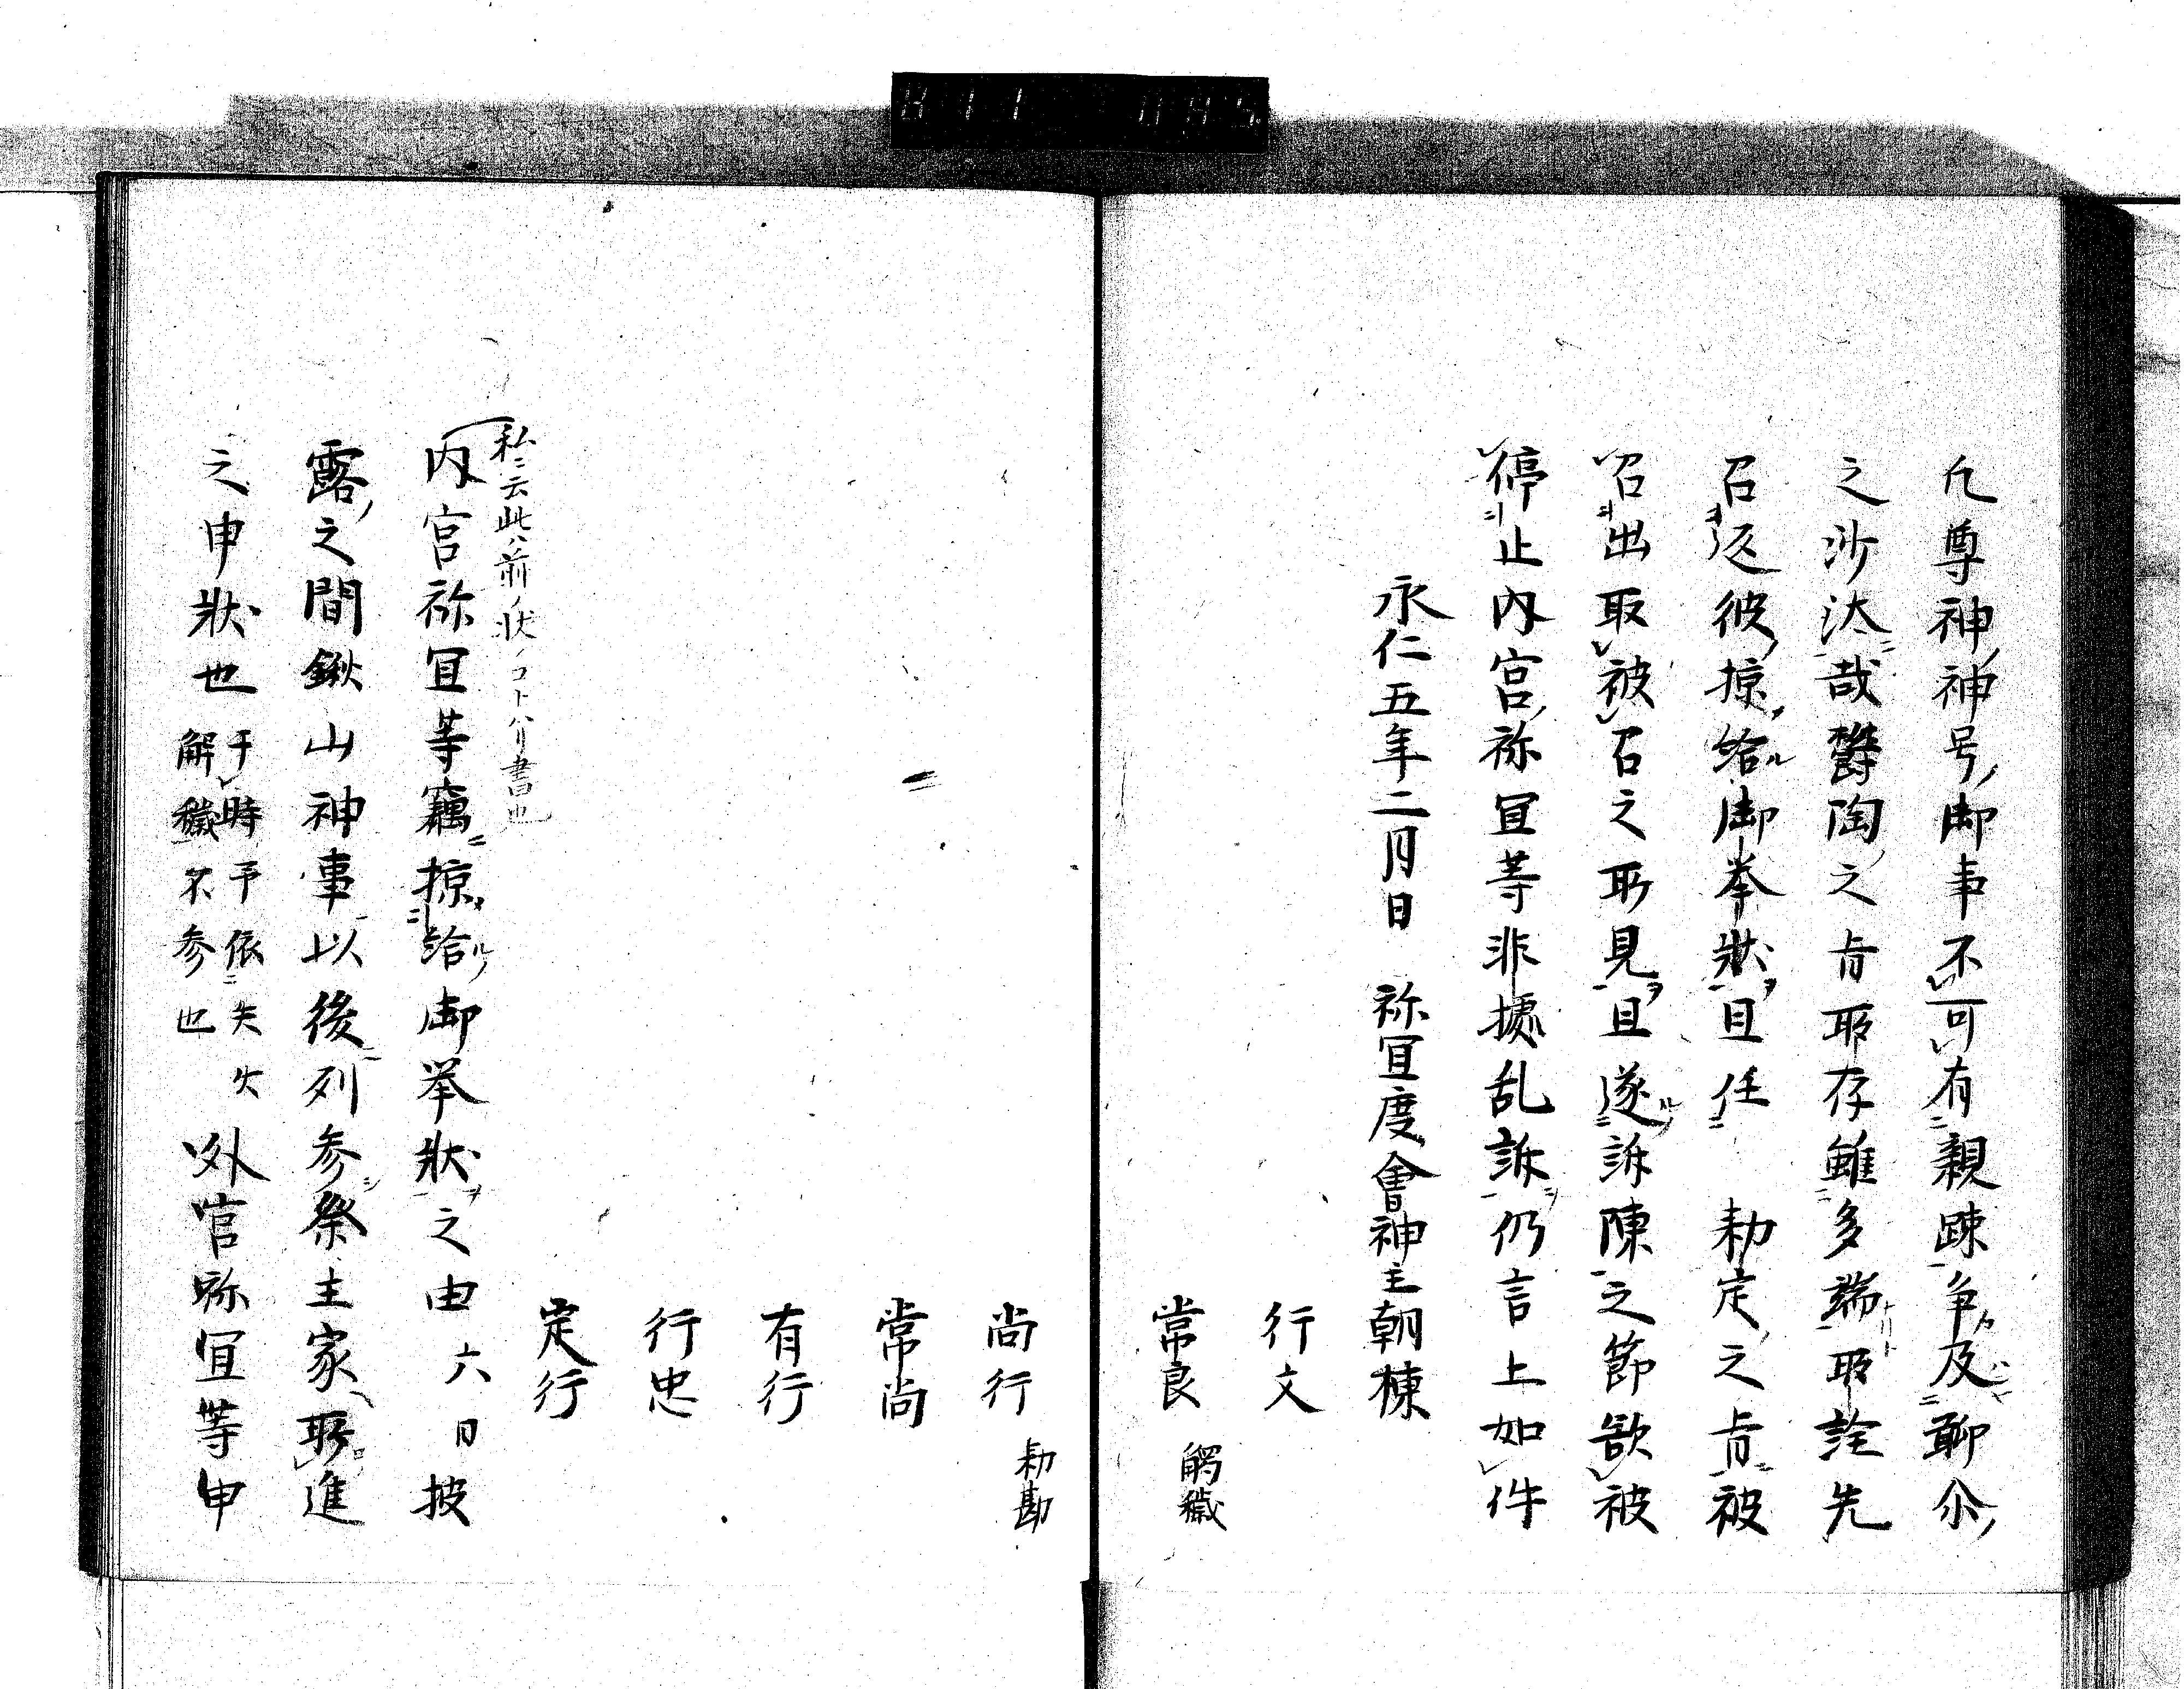 凢尊神神号御事不可有親疎争及聊尒
之沙汰哉欝陶之旨所存雖多端所詮先
召返彼掠給御挙状且任 勅定之旨被
召出取被召之所見且遂訴陳之節欲被
停止内宮祢冝等非據乱訴仍言上如件
永仁五年二月日 祢冝度會神主朝棟
行文
常良 觸穢
尚行 勅勘
常尚
有行
行忠
定行
私ニ云此ハ前ノ状ノコトハリ書也
内宮祢冝等竊掠給御挙状之由六日披
露之間鍬山神事以後列参祭主家所進
之申状也 于時予依失火 解穢不参也 外宮祢冝等申